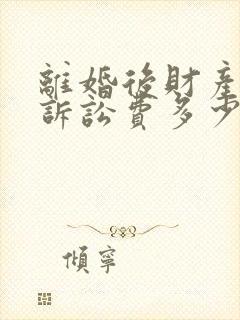 離婚後財產
訴訟費多少
傾寧